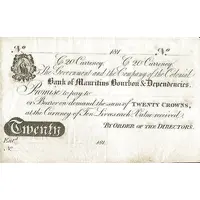 No 181 No
C 20 Currency. C 20 Currency.
The Government and the Company of the Colonial
Bank of Mauritius Bourbon & Dependencies.
Promise to pay to
or Bearer on demand the sum of TWENTY CROWNS,
at the Currency of Ten Livres each Value received
Twenty BY ORDER OF THE DIRECTORS.
181
No